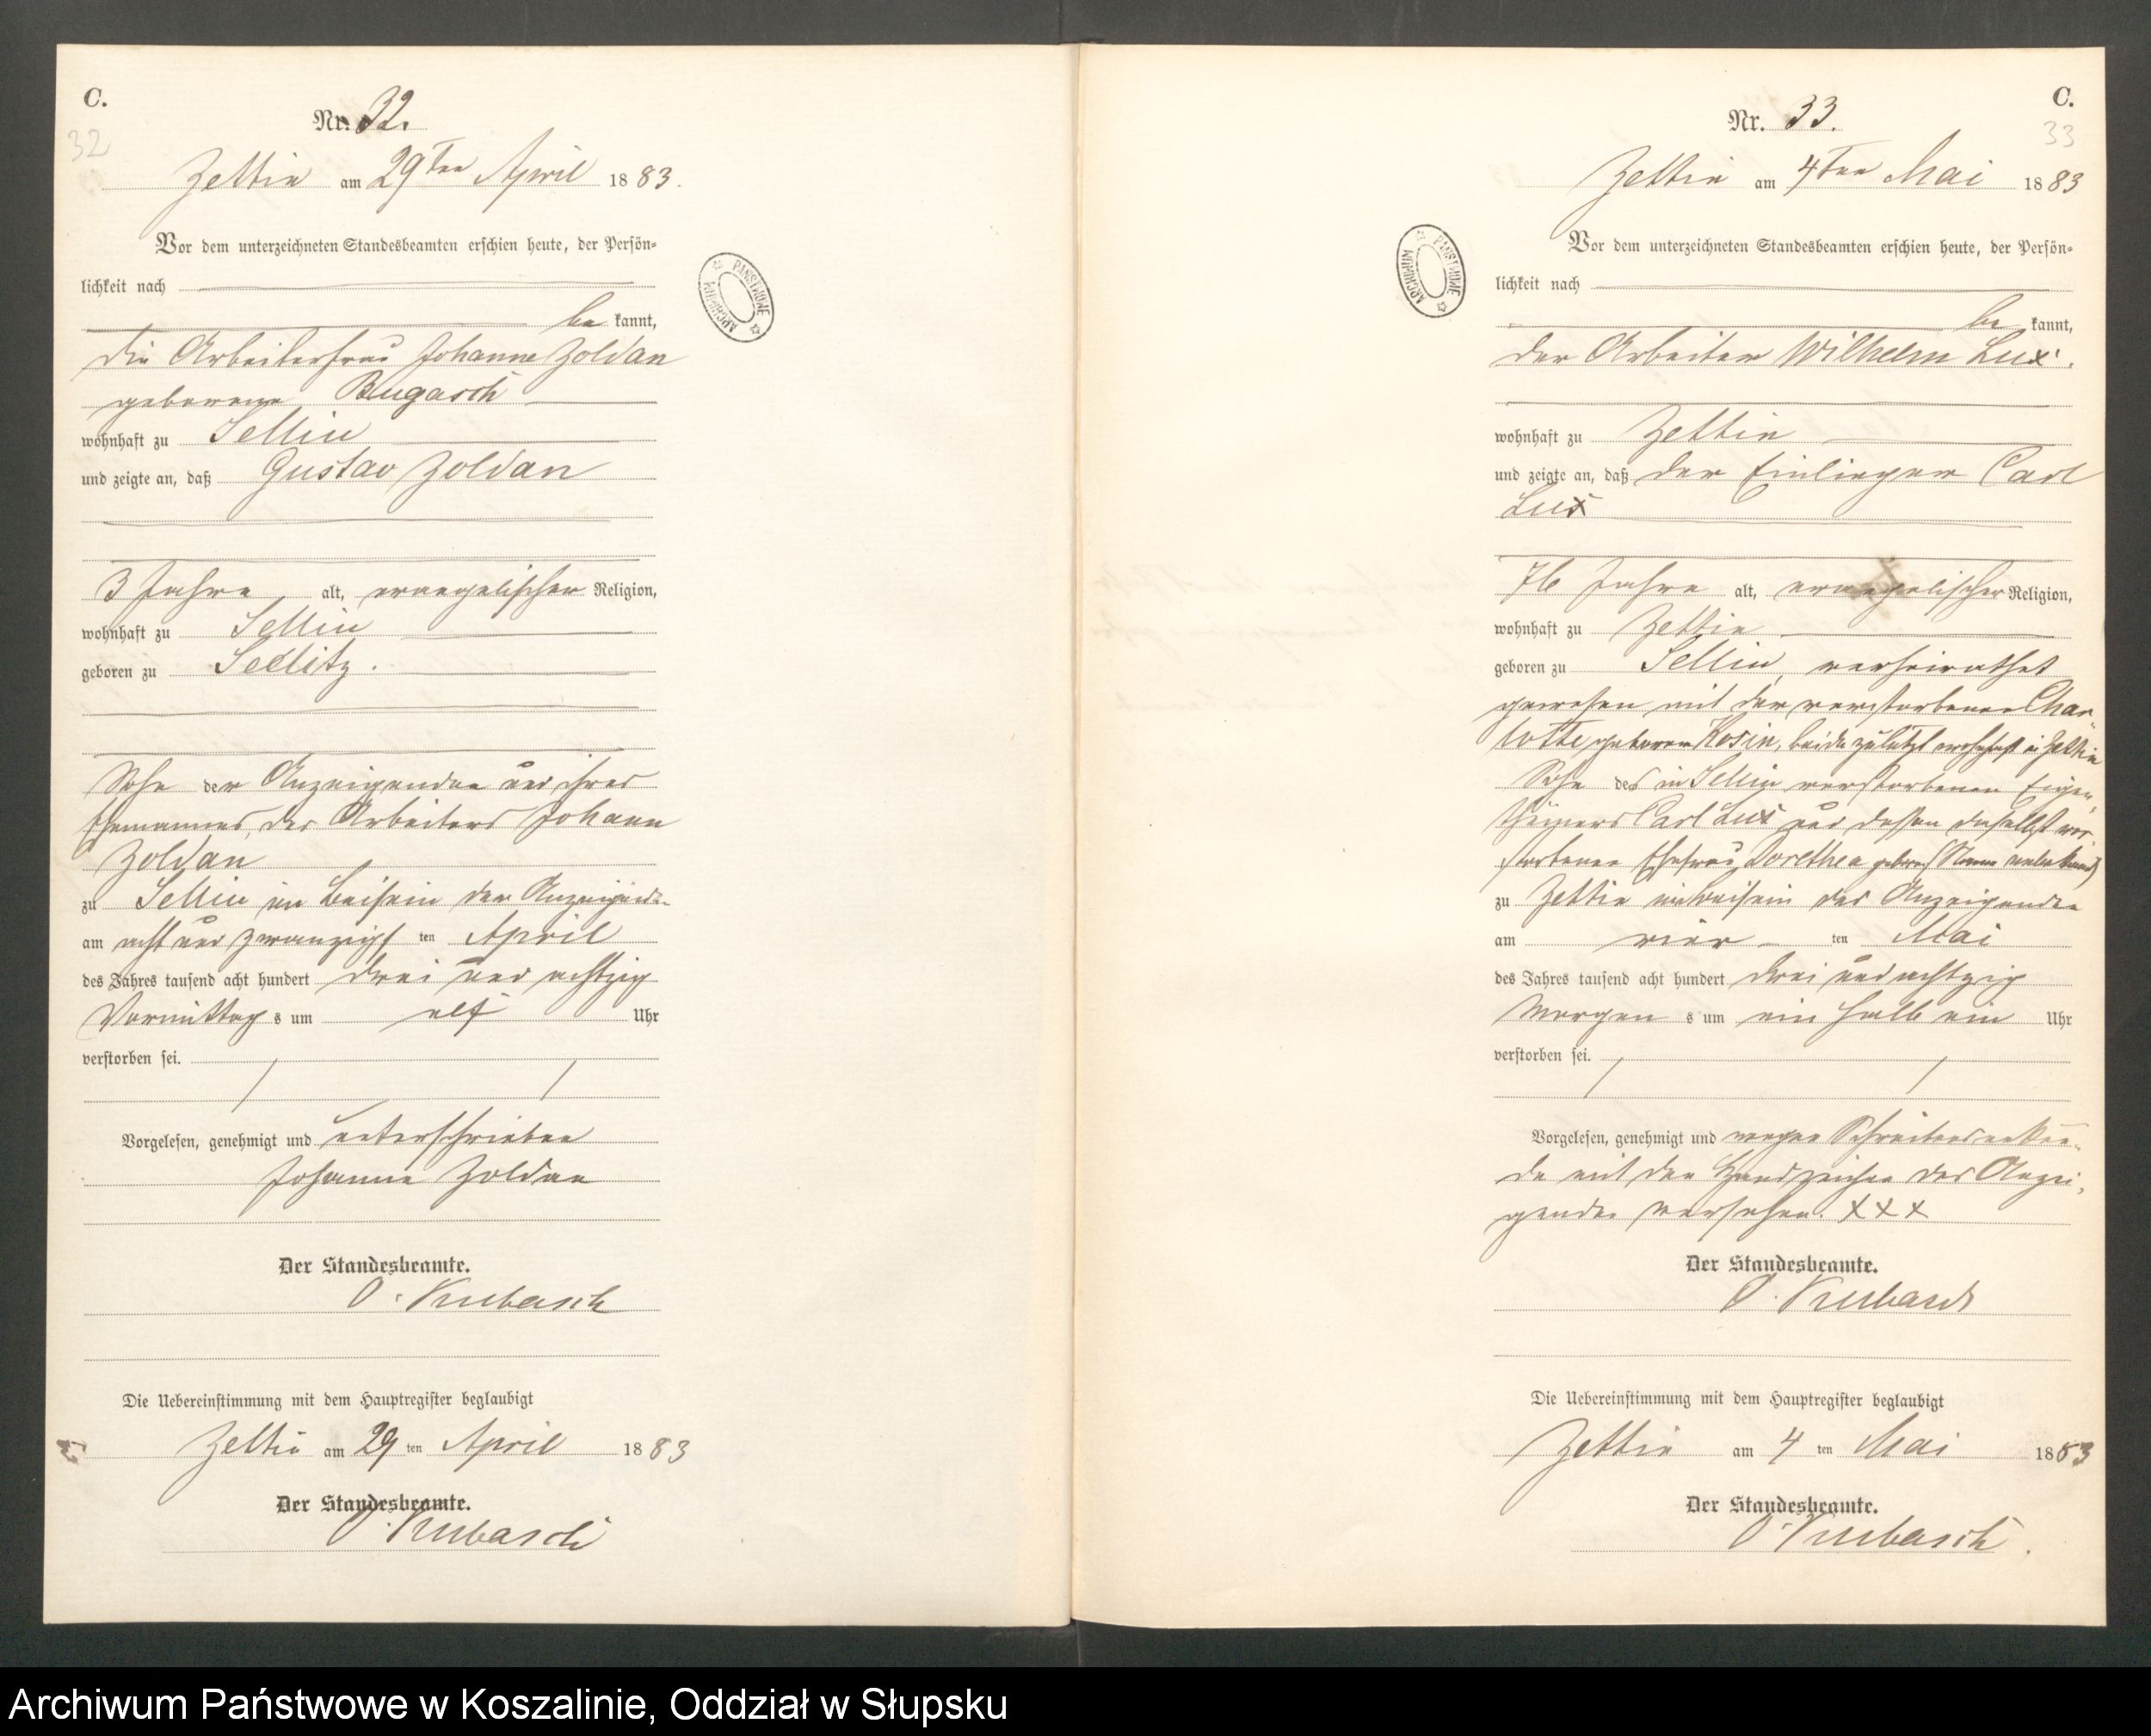 C.
32
Nr. 32.
Zettin am 29ten April 1883.
Vor dem unterzeichneten Standesbeamten erschien heute, der Persön=
lichkeit nach
be kannt,
die Arbeiterfrau Johanne Zoldan
geborene
wohnhaft zu Sellin
und zeigte an, daß Gustav Zoldan
3 Jahre alt, evangelischer Religion,
wohnhaft zu Sellin
geboren zu Sellitz.
Sohn der Anzeigenden und ihres
Ehemannes, des Arbeiters Johann
Zoldan
zu Sellin im Beisein der Anzeigenden
am acht und zwanzigsten April
des Jahres tausend acht hundert drei und achtzig
Vormittags um elf Uhr
verstorben sei.
Vorgelesen, genehmigt und unterschrieben
Johanne Zoldan
Der Standesbeamte.
O. Kubasch
Die Uebereinstimmung mit dem Hauptregister beglaubigt
Zettin am 29 ten April 1883
Der Standesbeamte.
O. Kubasch
PAŃSTWOWE ARCHIWUM
C.
33
Nr. 33.
Zettin am 4ten Mai 1883
Vor dem unterzeichneten Standesbeamten erschien heute, der Persön=
lichkeit nach
be kannt,
der Arbeiter Wilhelm Lux.
wohnhaft zu Zettin
und zeigte an, daß der Einlieger Carl
Lux
76 Jahre alt, evangelischer Religion,
wohnhaft zu Zettin
geboren zu Sellin, verheirathet
gewesen mit der verstorbenen Char=
lotte geborene Kosin, beide zuletzt wohnhaft in Zettin
Sohn des in Sellin verstorbenen Eigen=
thümers Carl Lux und dessen daselbst ver=
storbenen Ehefrau Dorethea geboren (Name unbekannt)
zu Zettin im Beisein des Anzeigenden
am vier ten Mai
des Jahres tausend acht hundert drei und achtzig
Morgens um ein halb ein Uhr
verstorben sei.
Vorgelesen, genehmigt und wegen Schreibensunkun=
de mit den Handzeichen des Anzei=
genden versehen. XXX
Der Standesbeamte.
O. Kubasch
Die Uebereinstimmung mit dem Hauptregister beglaubigt
Zettin am 4 ten Mai 1883
Der Standesbeamte.
O. Kubasch.
PAŃSTWOWE ARCHIWUM
Archiwum Państwowe w Koszalinie, Oddział w Słupsku